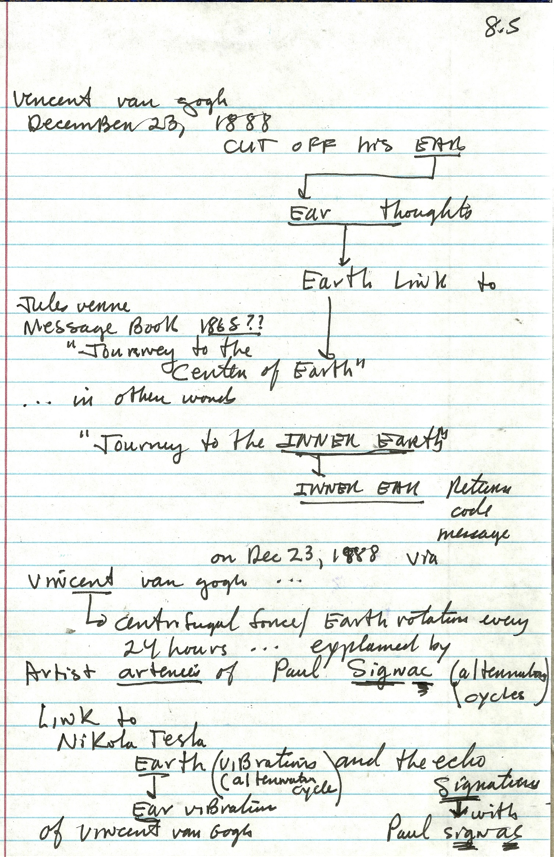 8.5
Vincent van gogh
December 23, 1888
CUT OFF his EAR
Ear thoughts
Earth Link to
Jules Verne
Message Book 1865??
"Journey to the
Center of Earth"
... in other words
"Journey to the INNER Earth"
INNER EAR Return
code
message
on Dec 23, 1888 via
Vincent van gogh ...
centrifugal force/ Earth rotation every
24 hours ... explained by
Artist arteries of Paul Signac (alternating
cycles)
Link to
Nikola Tesla
Earth (vibrations and the echo
(alternator
cycle) Signature
Ear vibration with
of Vincent van Gogh Paul signac